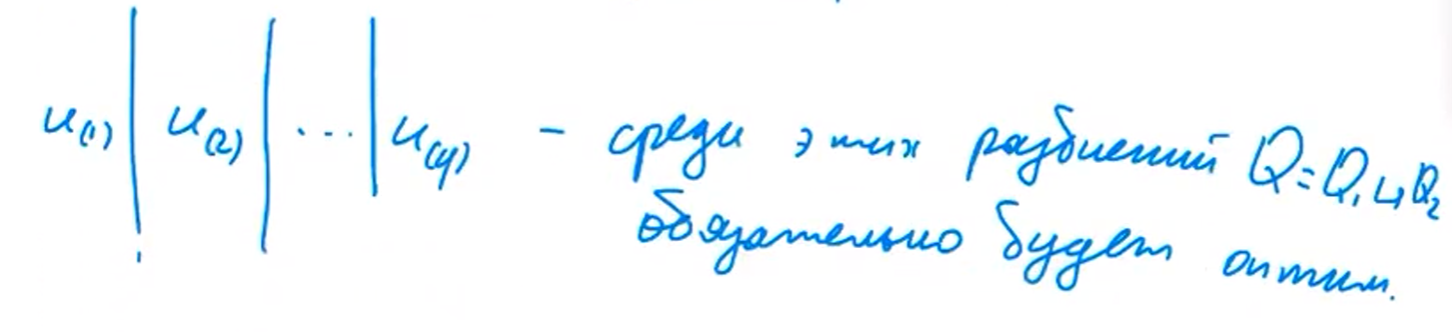 u₍₁₎ | u₍₂₎ | ... | u₍q₎ – среди этих разбиений Q = Q₁ ⊔ Q₂
обязательно будет оптим.